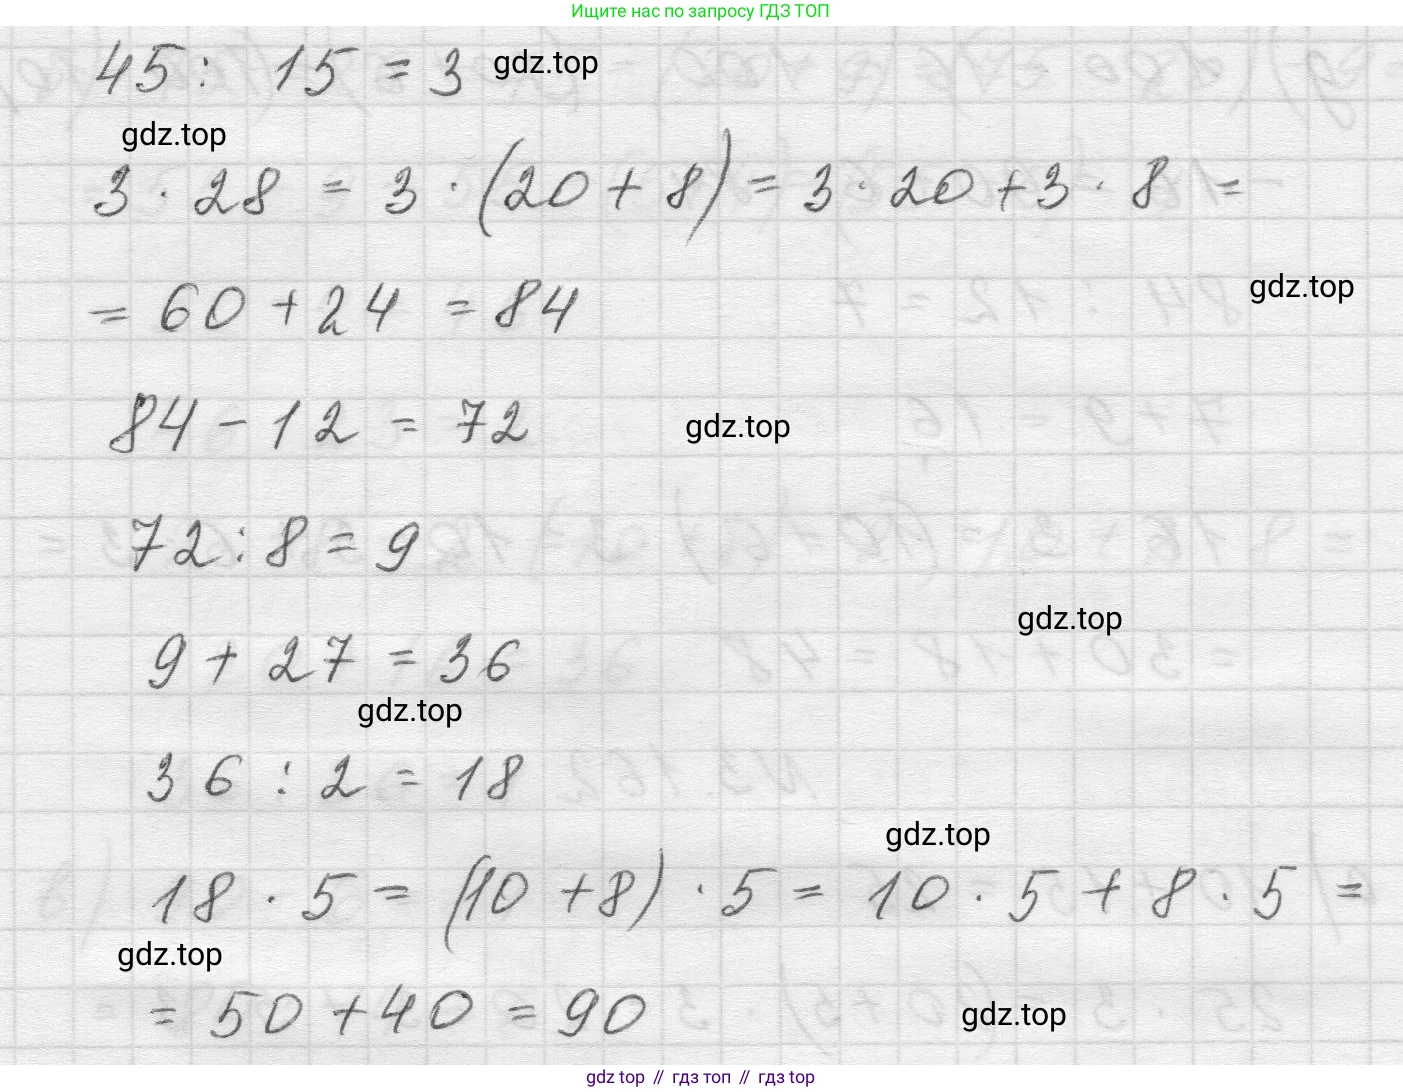 Ищите нас по запросу ГДЗ ТОП
45 : 15 = 3 gdz.top
gdz.top
3 · 28 = 3 · (20 + 8) = 3 · 20 + 3 · 8 =
gdz.top
= 60 + 24 = 84
84 - 12 = 72 gdz.top
72 : 8 = 9
gdz.top
9 + 27 = 36
gdz.top
36 : 2 = 18
gdz.top
18 · 5 = (10 + 8) · 5 = 10 · 5 + 8 · 5 =
gdz.top
= 50 + 40 = 90 gdz.top
gdz top // гдз топ // gdz top